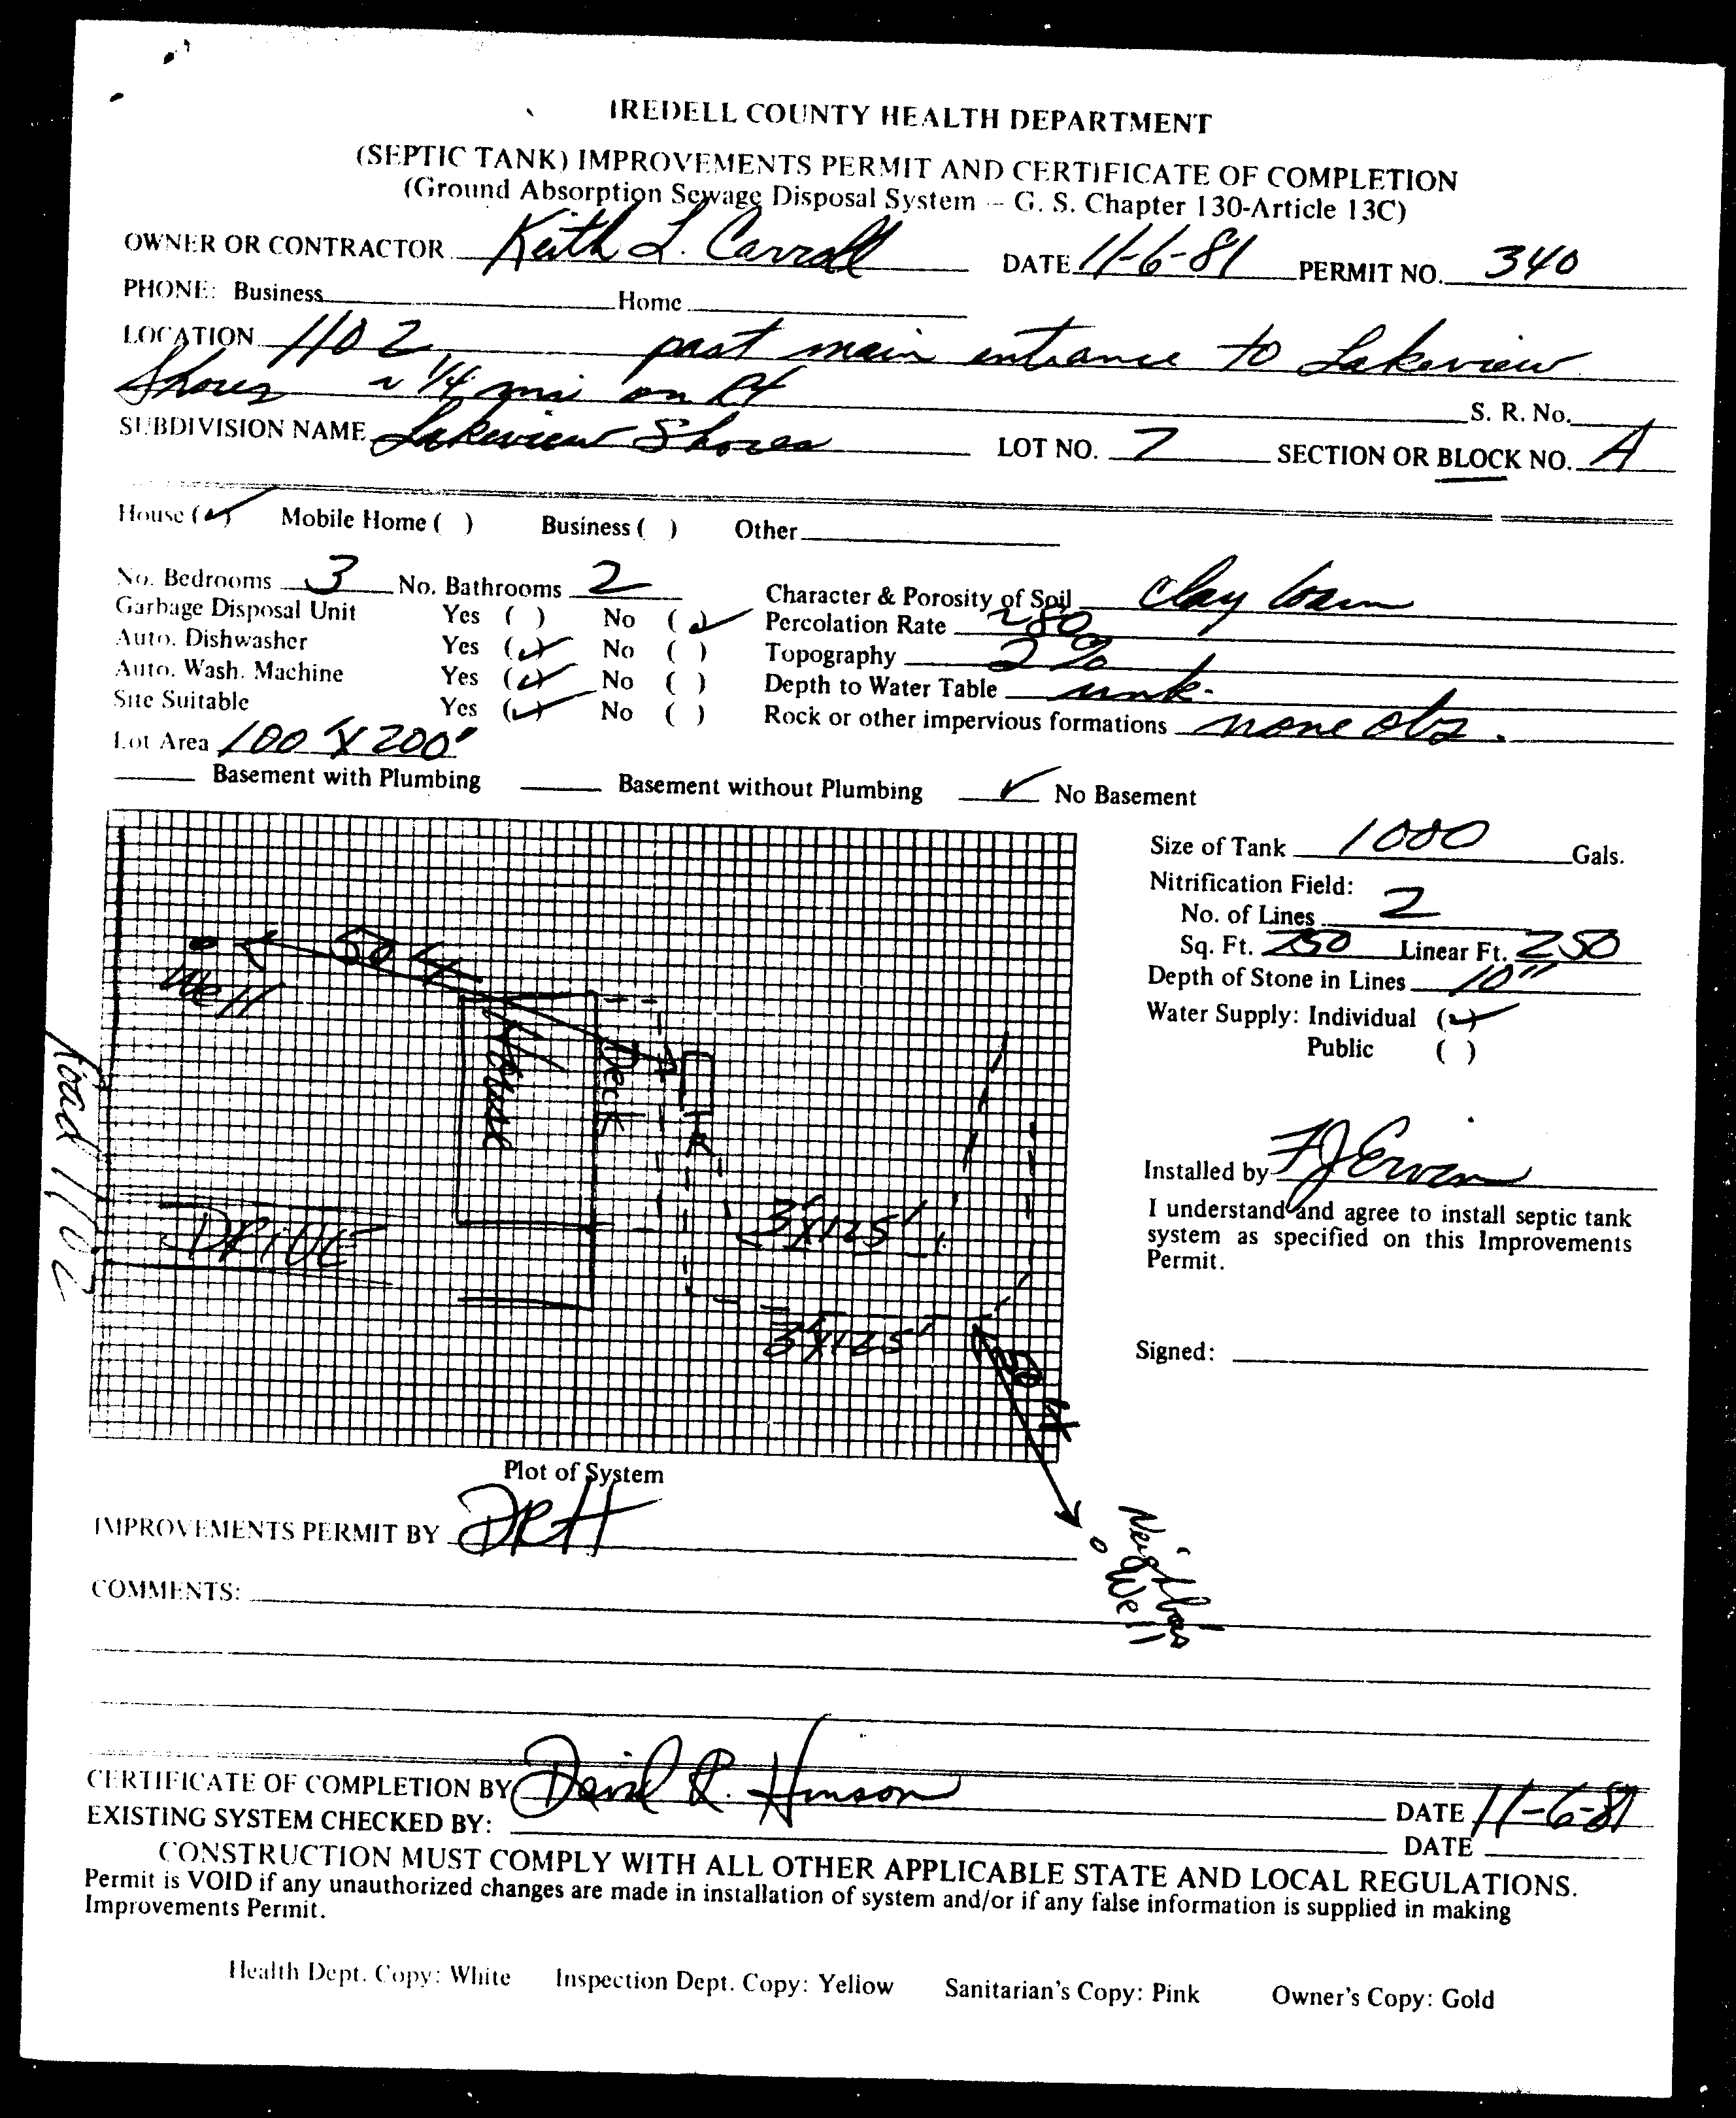 IREDELL COUNTY HEALTH DEPARTMENT
(SEPTIC TANK) IMPROVEMENTS PERMIT AND CERTIFICATE OF COMPLETION
(Ground Absorption Sewage Disposal System – G. S. Chapter 130-Article 13C)
OWNER OR CONTRACTOR Keith L. Carroll DATE 11-6-81 PERMIT NO. 340
PHONE: Business Home
LOCATION 1102 past main entrance to Lakeview
Shores ~ 1/4 mi on Rt
S. R. No.
SUBDIVISION NAME Lakeview Shores LOT NO. 7 SECTION OR BLOCK NO. A
House (✓) Mobile Home ( ) Business ( ) Other
No. Bedrooms 3 No. Bathrooms 2 Character & Porosity of Soil clay loam
Garbage Disposal Unit Yes ( ) No (✓) Percolation Rate 280
Auto. Dishwasher Yes (✓) No ( ) Topography 2%
Auto. Wash. Machine Yes (✓) No ( ) Depth to Water Table unk.
Site Suitable Yes (✓) No ( ) Rock or other impervious formations none obs.
Lot Area 100' X 200'
Basement with Plumbing Basement without Plumbing ✓ No Basement
Size of Tank 1000 Gals.
Nitrification Field:
No. of Lines 2
Sq. Ft. 750 Linear Ft. 250
Depth of Stone in Lines 10"
Water Supply: Individual (✓)
Public ( )
50 ft
Well
House
Deck
Road 1102
DRIVE
3'X125'
3'X125'
50 ft
Neighbors
Well
Installed by F J Ervin
I understand and agree to install septic tank
system as specified on this Improvements
Permit.
Signed:
Plot of System
IMPROVEMENTS PERMIT BY DRH
COMMENTS:
CERTIFICATE OF COMPLETION BY David R. Hinson DATE 11-6-81
EXISTING SYSTEM CHECKED BY: DATE
CONSTRUCTION MUST COMPLY WITH ALL OTHER APPLICABLE STATE AND LOCAL REGULATIONS.
Permit is VOID if any unauthorized changes are made in installation of system and/or if any false information is supplied in making
Improvements Permit.
Health Dept. Copy: White Inspection Dept. Copy: Yellow Sanitarian's Copy: Pink Owner's Copy: Gold